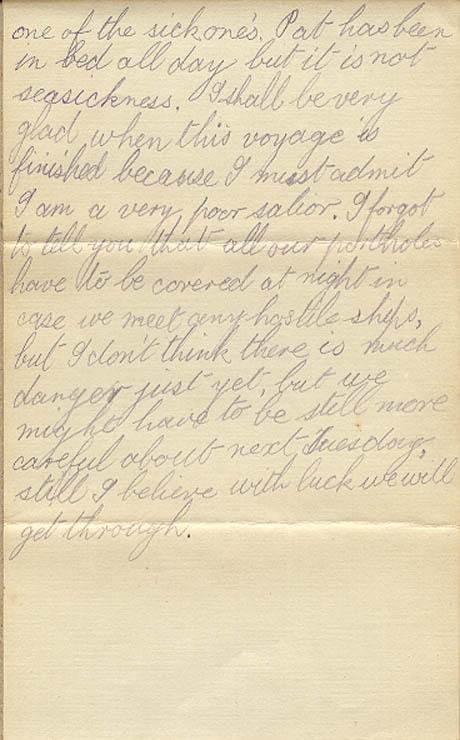 one of the sick one's. Pat has been
in bed all day but it is not
seasickness. I shall be very
glad when this voyage is
finished because I must admit
I am a very poor salior. I forgot
to tell you that all our portholes
have to be covered at night in
case we meet any hostile ships,
but I don't think there is much
danger just yet, but we
might have to be still more
careful about next Tuesday,
still I believe with luck we will
get through.